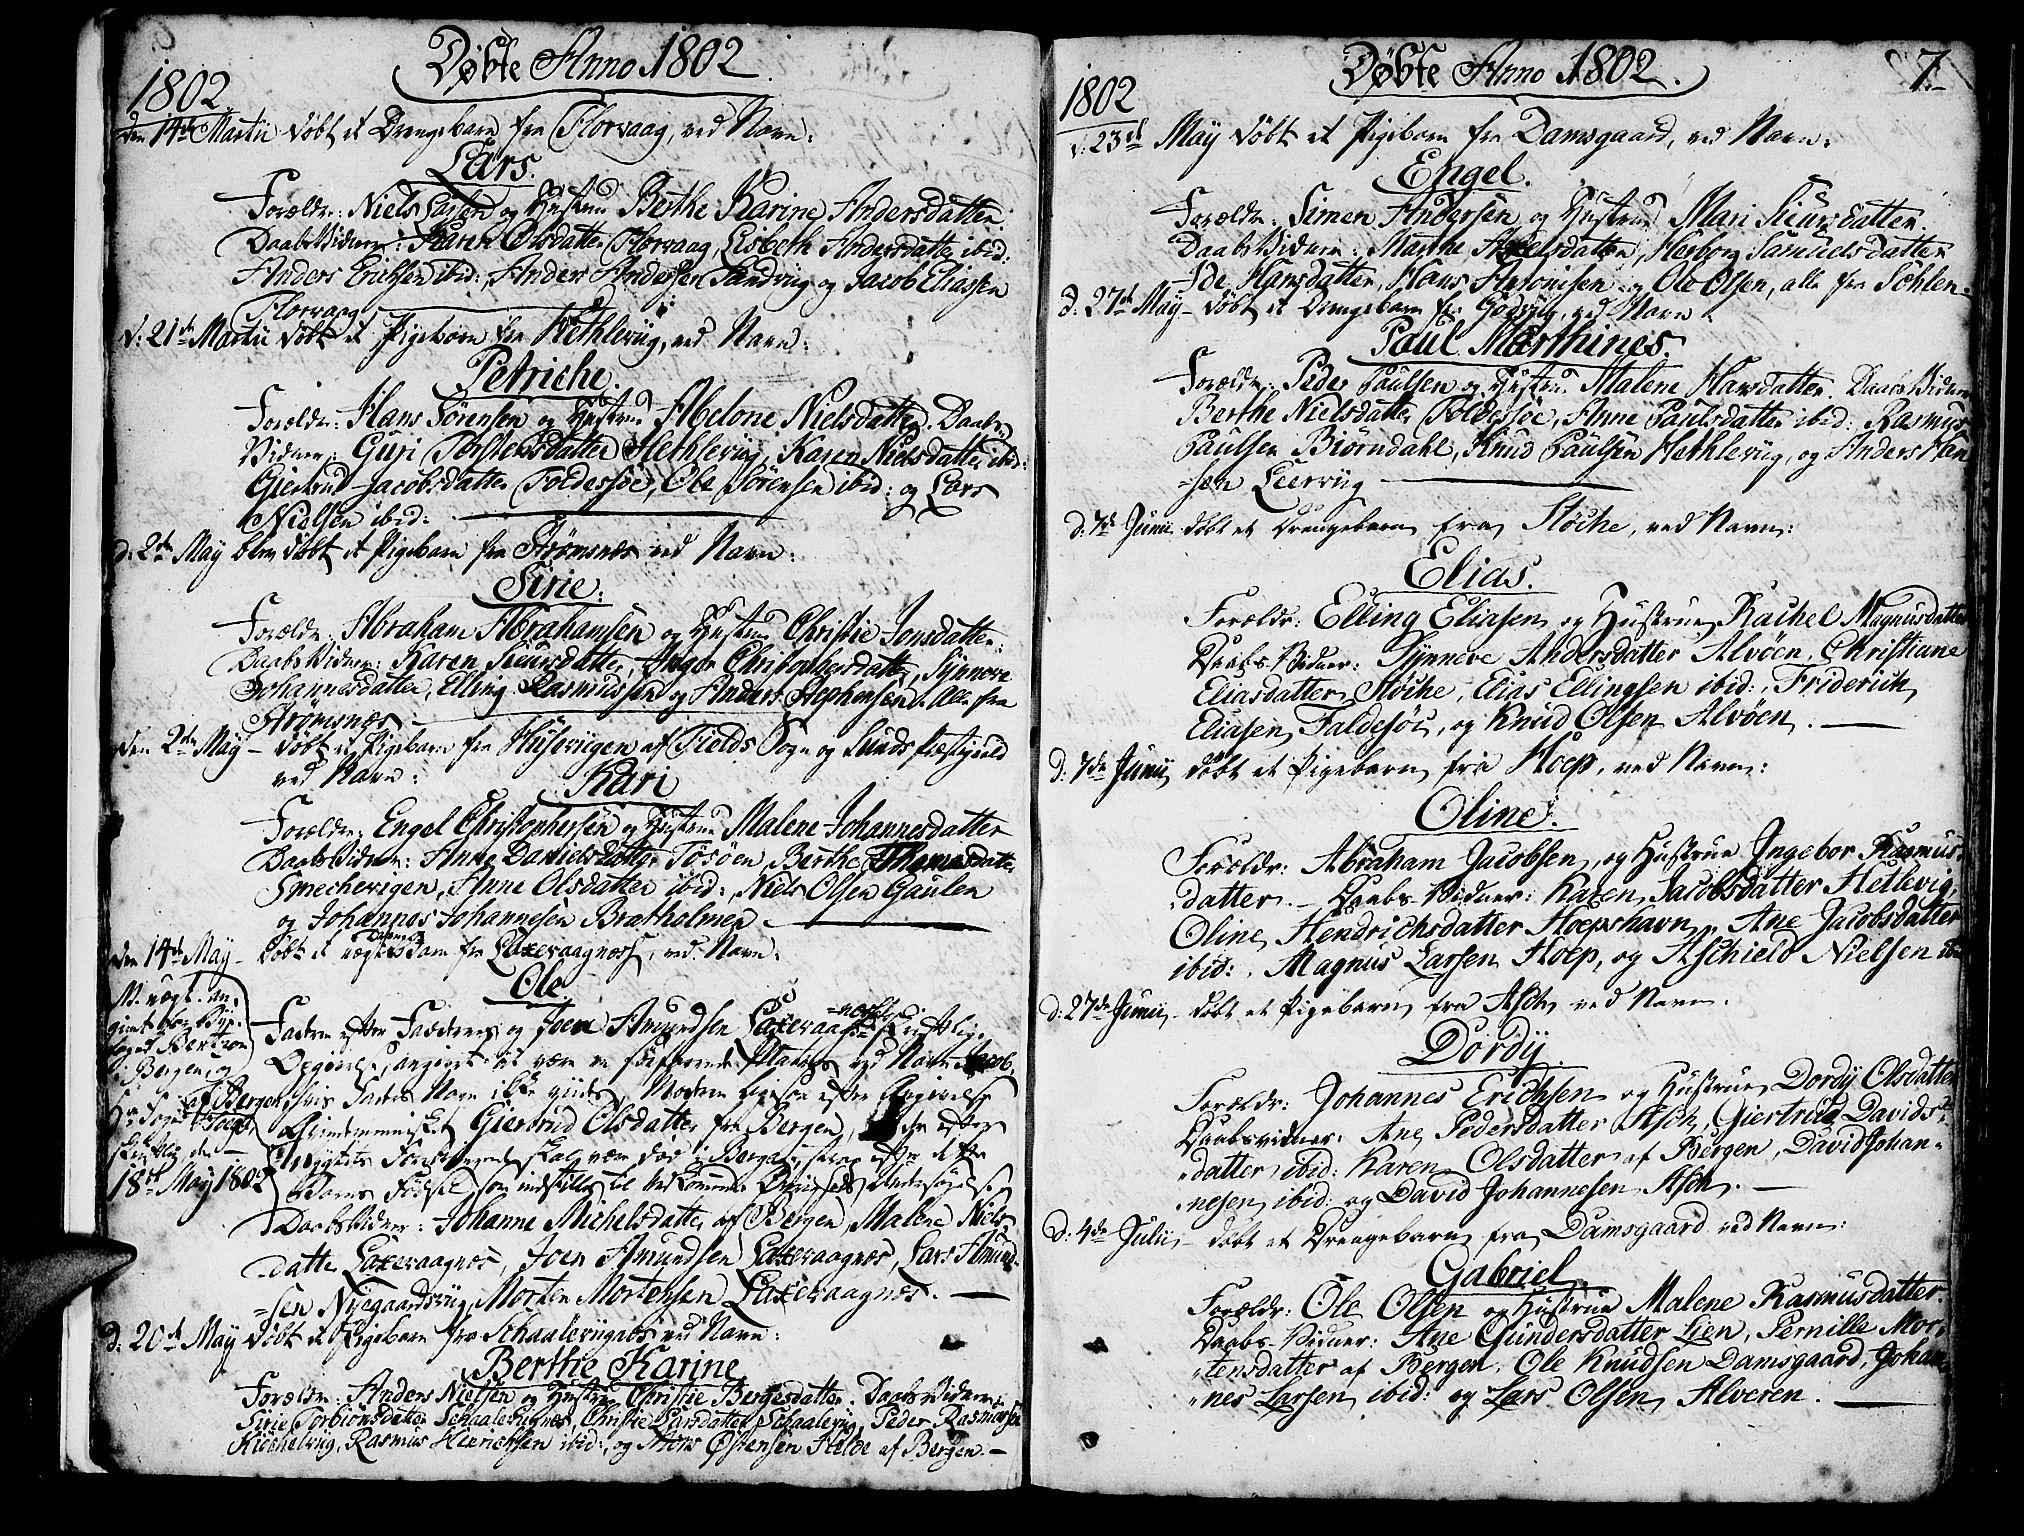 Døbte Anno 1802
1802
den 14de Martii døbt et Drengebarn fra Florvaag, ved Navn:
Lars.
Forældre: Niels Larsen og Hustrue Berthe Karine Andersdatter.
Daabs Vidner: Karen Olsdatter Florvaag, Lisbeth Andersdatter ibid:
Anders Erichsen ibid:, Anders Andersen Sandvig og Jacob Eliassen
Florvaag.
d: 21de Martii døbt et Pigebarn fra Hethlevig, ved Navn:
Petriche.
Forældre: Hans Sørensen og Hustrue Abelone Nielsdatter. Daabs
Vidner: Guri Torstensdatter Hethlevig, Karen Nielsdatter ibid:
Giertrud Jacobsdatter Foldessøe, Ole Sørensen ibid: og Lars
Nielsen ibid:
d: 2de May blev døbt et Pigebarn fra Strømsnæs ved Navn:
Sirie:
Forældre: Abraham Abrahamsen og Hustrue Christie Jonsdatter:
Daabs Vidner: Karen Siursdatter, Inger Christophersdatter, Synnove
Johannesdatter, Elling Rasmussen og Anders Stephensen. Alle fra
Strømsnæs
den 2den May døbt et Pigebarn fra Husevigen af Fields Sogn og Sunds Præstegield
ved Navn:
Kari
Forældre: Engel Christophersen og Hustrue Malene Johannesdatter
Daabs Vidner: Anne Danielsdatter Tøsøen, Berthe Thomasdatter
Smechevigen, Anne Olsdatter ibid:, Niels Olsen Gaulen
og Johannes Johannesen Bratholmen
den 14de May døbt et uægte Drengebarn fra Laxevaagnæss, ved Navn:
Ole
N. uægt. an-
givet
Bergen, og
18de May 1802
Faderen efter Faderens og Joen Amundsen Laxevaagnæs skriftlige
Opgivelse, angivet at være en søefarende Matros ved Navn Jacob,
hvis Faders Navn ikke vides, Moderen ligesaa efter Angivelse
Qvindemennisket Giertrud Olsdatter fra Bergen,
skal være død i Bergen, strax efter dette
Barns Fødsel, som indstilles til vedkommende Øvrigheds Undersøgelse
Daabs Vidner: Johanne Michelsdatter af Bergen, Malene Niels-
datter Laxevaagnæs, Joen Amundsen Laxevaagnæs, Lars Amund-
sen Nyegaardsvig, Morten Mortensen Laxevaagnæs.
d: 20de May døbt et Pigebarn fra Schaalevignæs ved Navn:
Berthe Karine
Forældre: Anders Nielsen og Hustrue Christie Børgesdatter. Daabs Vidner:
Sirie Torbiønsdatter Schaalevignæs, Christie Larsdatter Schaalevig, Peder Rasmussen
Kiøchelvig, Rasmus Henrichsen ibid:, og Mons Østensen Helde af Bergen.
Døbte Anno 1802.
7.
1802
d: 23de May døbt et Pigebarn fra Damsgaard, ved Navn:
Engel.
Forældre: Simen Andersen og Hustrue Mari Siursdatter.
Daabs Vidner: Marthe Abelsdatter, Herborg Samuelsdatter
Ide Hansdatter, Hans Aronisen og Ole Olsen, alle fra Sohlen.
d: 27de May døbt et Drengebarn fra Godvig, ved Navn
Paul Marthines.
Forældre: Peder Paulsen og Hustrue Malene Hansdatter. Daabs Vidner
Berthe Nielsdatter Foldessøe, Anne Paulsdatter ibid: Rasmus
Paulsen Biørndahl, Knud Paulsen Hethlevig, og Anders Han
-sen Leervig
d: 7de Junii døbt et Drengebarn fra Støche, ved Navn:
Elias.
Forældr: Elling Eliasen og Hustrue Rachel Magnusdatter
Daabs Vidner: Synneve Andersdatter Alvøen, Christiane
Eliasdatter Støche, Elias Ellingsen ibid:, Friderich
Eliasen Faldesøe, og Knud Olsen Alvøen.
d: 7de Junii døbt et Pigebarn fra Hoep, ved Navn:
Oline.
Forældr: Abraham Jacobsen, og Hustrue Ingebor Rasmus-
datter. Daabs Vidner: Karen Jacobsdatter Hetlevig,
Oline Hendrichsdatter Hoepshavn, Ane Jacobsdatter
ibid:, Magnus Larsen Hoep, og Aschield Nielsen ibid
d: 27de Junii døbt et Pigebarn fra Asch ved Navn.
Dordy.
Forældr: Johannes Erichsen og Hustrue Dordy Olsdatter
Daabsvidner: Ane Pedersdatter Asch, Giertrud Davids-
datter ibid: Karen Olsdatter af Bergen, David Johan-
nesen ibid: og David Johannesen Asch.
d: 4de Julii døbt et Drengebarn fra Damsgaard ved Navn:
Gabriel.
Forældr: Ole Olsen og Hustrue Malene Rasmusdatter.
Daabs Vidner: Ane Gundersdatter Lien, Pernille Mor-
tensdatter af Bergen, Ole Knudsen Damsgaard, Johan-
nes Larsen ibid: og Lars Olsen Alveren.